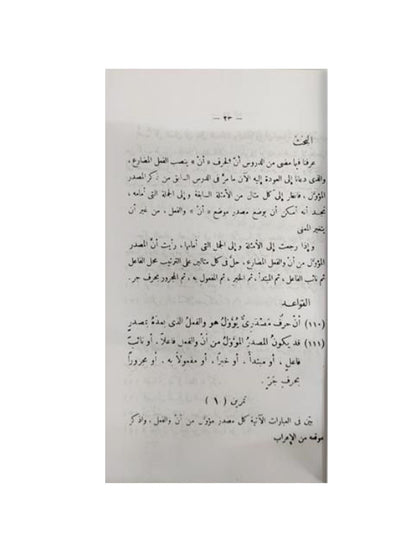 — ٢٣ —
البحث
عرفنا فيما مضى من الدروس أنّ الحرف « أنْ » ينصب الفعل المضارع ،
والذى دعانا إلى العودة إليه الآن ما مرّ فى الدرس السابق من ذكر المصدر
المؤوّل ، فانظر إلى كل مثال من الأمثلة السابقة و إلى الجملة التى أمامه ،
تجد أنه أمكن أن يوضع مصدر موضع « أنْ » والفعل ، من غير أن
يتغير المعنى
و إذا رجعت إلى الأمثلة و إلى الجمل التى أمامها ، رأيت أنّ المصدر
المؤوّل من أنْ والفعل المضارع ، حلّ فى كل مثالين على الترتيب محل الفاعل
ثم نائب الفاعل ، ثم المبتدأ ، ثم الخبر ، ثم المفعول به ، ثم المجرور بحرف جر .
القواعد
(١١٠) أنْ حرفٌ مَصْدَرىٌّ يُؤوَّلُ هو والفعلُ الذى بعدَهُ بمصدرٍ
(١١١) قد يكونُ المصدرُ المؤوَّلُ منْ أنْ والفعلِ فاعلاً . أو نائبَ
فاعلٍ ، أو مبتدأً . أو خبرًا ، أو مفعولاً به . أو مجرورًا
بحرفِ جَرٍّ .
تمرين ( ١ )
بيّن فى العبارات الآتية كل مصدر مؤوّل من أنْ والفعل ، واذكر
موقعه من الإعراب